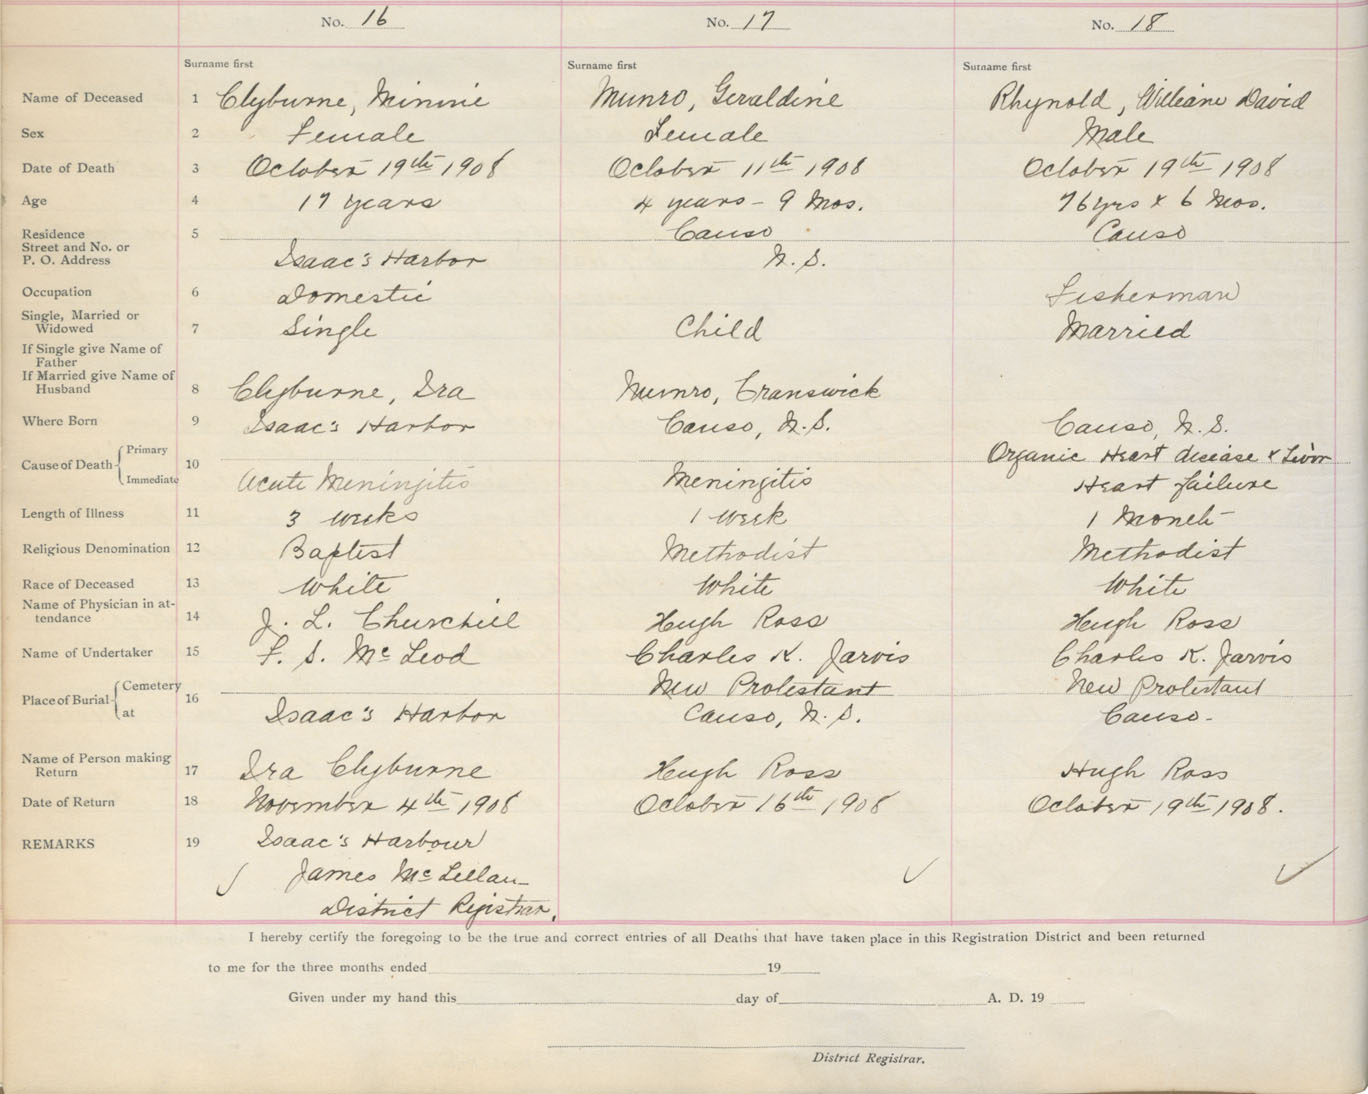 No. 16 No. 17 No. 18
Surname first Surname first Surname first
Name of Deceased 1 Clyburne, Minnie Munro, Geraldine Rhynold, William David
Sex 2 Female Female Male
Date of Death 3 October 19th 1908 October 11th 1908 October 19th 1908
Age 4 17 years 4 years - 9 Mos. 76 yrs & 6 Mos.
Residence 5 Canso Canso
Street and No. or
P. O. Address Isaac's Harbor N. S.
Occupation 6 Domestic Fisherman
Single, Married or
Widowed 7 Single Child Married
If Single give Name of
Father
If Married give Name of
Husband 8 Clyburne, Ira Munro, Cranswick
Where Born 9 Isaac's Harbor Canso, N. S. Canso, N. S.
Primary Organic Heart decease & Livor
Cause of Death 10
Immediate Acute Meningitis Meningitis Heart failure
Length of Illness 11 3 weeks 1 week 1 Month
Religious Denomination 12 Baptist Methodist Methodist
Race of Deceased 13 White White White
Name of Physician in at-
tendance 14 J. L. Churchill Hugh Ross Hugh Ross
Name of Undertaker 15 F. S. McLeod Charles K. Jarvis Charles K. Jarvis
Cemetery New Protestant New Protestant
Place of Burial 16
at Isaac's Harbor Canso, N. S. Canso -
Name of Person making
Return 17 Ira Clyburne Hugh Ross Hugh Ross
Date of Return 18 November 4th 1908 October 16th 1908 October 19th 1908.
REMARKS 19 Isaac's Harbour
James McLellan
District Registrar.
I hereby certify the foregoing to be the true and correct entries of all Deaths that have taken place in this Registration District and been returned
to me for the three months ended 19
Given under my hand this day of A. D. 19
District Registrar.